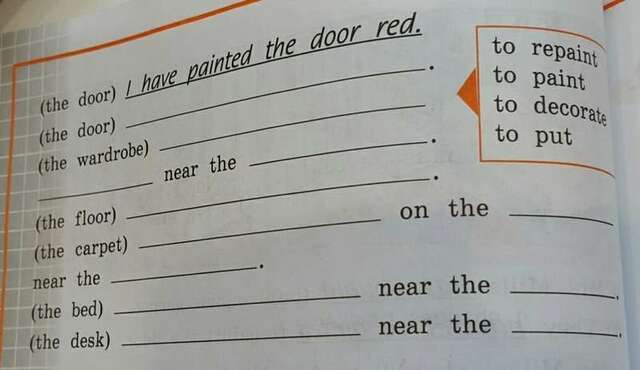 (the door) I have painted the door red.
(the door) ____________________.
(the wardrobe) ____________________
__________ near the ____________________.
(the floor) ____________________.
(the carpet) ____________________ on the __________
near the __________.
(the bed) ____________________ near the __________.
(the desk) ____________________ near the __________.
to repaint
to paint
to decorate
to put